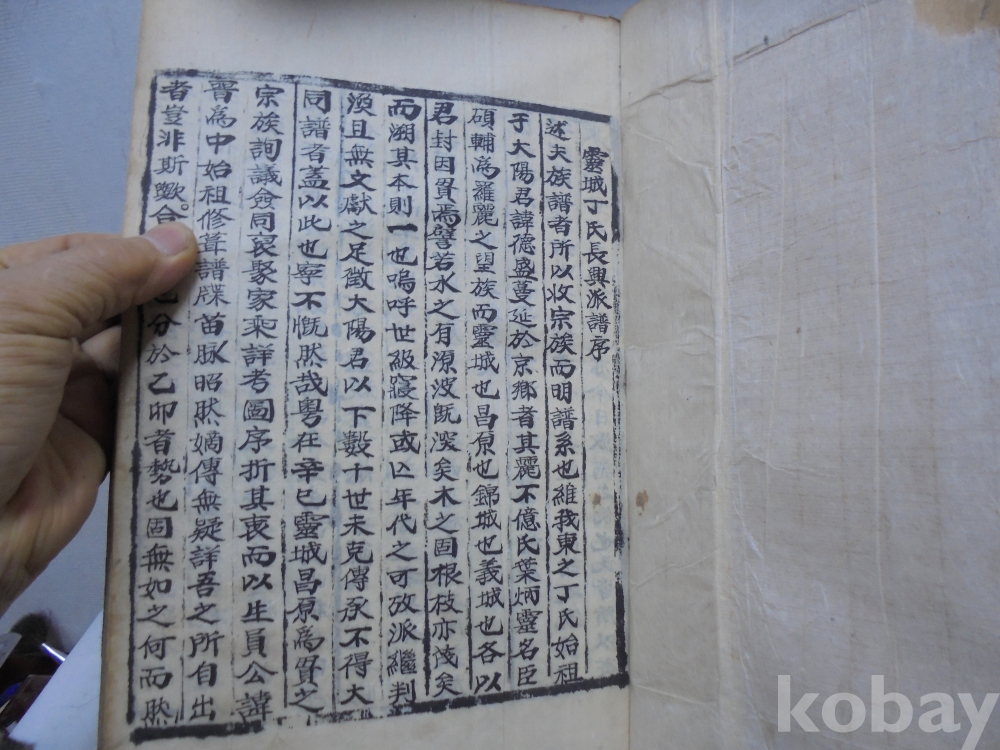 靈城丁氏長興派譜序
述夫族譜者所以收宗族而明譜系也維我東之丁氏始祖
于大陽君諱德盛蔓延於京鄉者其麗不億氏葉炳靈名臣
碩輔爲羅麗之望族而靈城也昌原也錦城也義城也各以
君封因貫焉譬若水之有源波旣深矣木之固根枝亦茂矣
而溯其本則一也嗚呼世級寢降或亡年代之可攷派繼判
渙且無文獻之足徵大陽君以下數十世未克傳承不得大
同譜者盖以此也寧不慨然哉粤在辛巳靈城昌原爲貫之
宗族詢議僉同裒聚家乘詳考圖序折其衷而以生員公諱
晋爲中始祖修葺譜牒苗脉昭然嫡傳無疑詳吾之所自出
者豈非斯歟。合 分於乙卯者勢也固無如之何而然
kobay